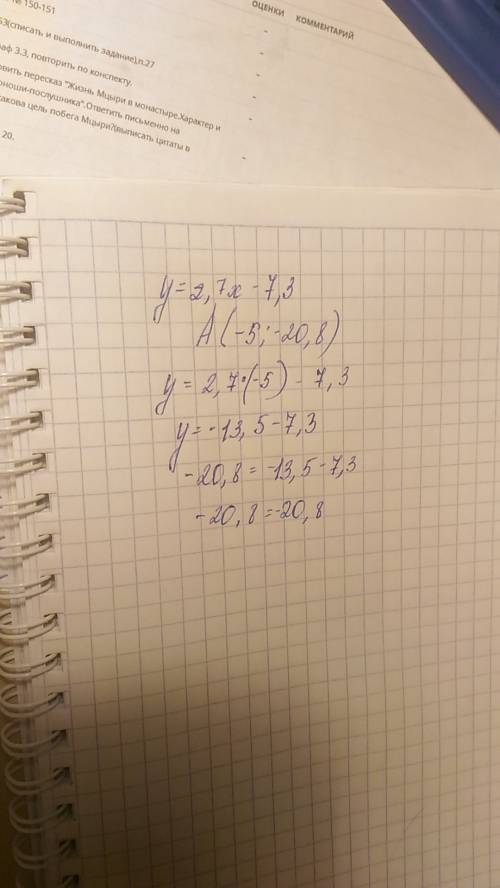 № 150-151
ОЦЕНКИ КОММЕНТАРИЙ
53(списать и выполнить задание),п.27
аф 3.3, повторить по конспекту.
овить пересказ "Жизнь Мцыри в монастыре.Характер и
оноши-послушника".Ответить письменно на
какова цель побега Мцыри?(выписать цитаты в
20.
y = 2,7x - 7,3
A (-5; -20,8)
y = 2,7·(-5) - 7,3
y = -13,5 - 7,3
-20,8 = -13,5 - 7,3
-20,8 = -20,8